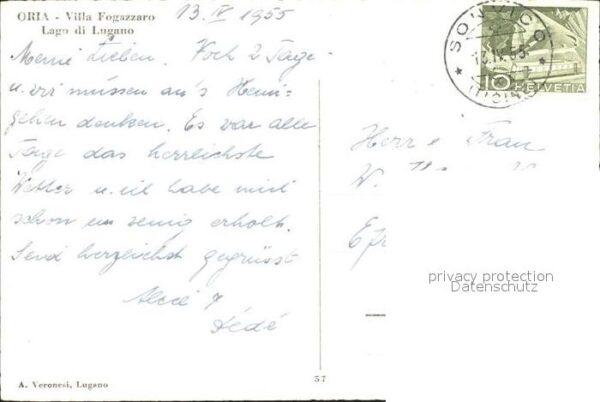 ORIA - Villa Fogazzaro
Lago di Lugano
13. IV 1955
Meine Lieben. Noch 2 Tage
u. wir müssen an's Heim-
gehen denken. Es war alle
Tage das herrlichste
Wetter u. ich habe mich
schon ein wenig erholt.
Seid herzlichst gegrüsst
Dédé
A. Veronesi, Lugano
57
SONVICO
13.IV.55
(TICINO)
10 HELVETIA
Herr u. Frau
W.
privacy protection
Datenschutz